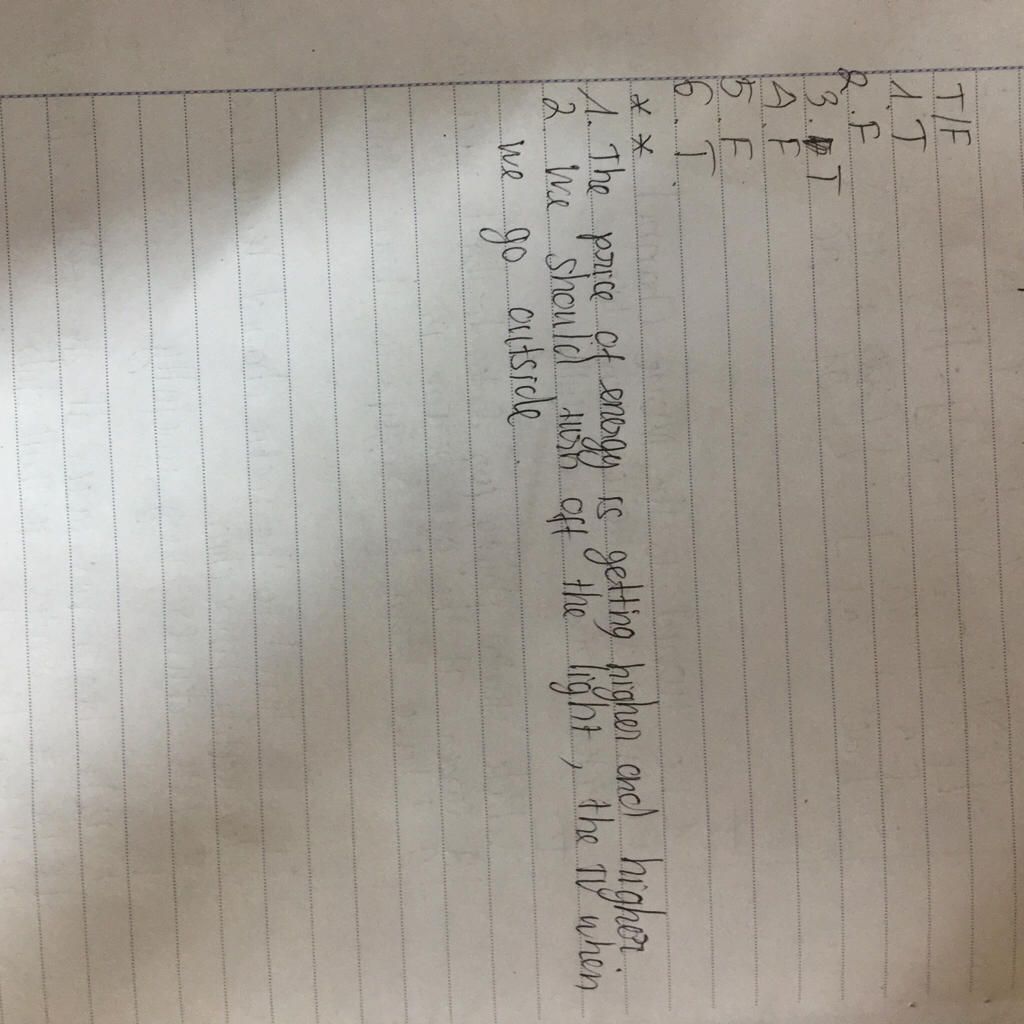 T/F
1. T
2. F
3. T
4. F
5. F
6. T
* *
1. The price of energy is getting higher and higher
2 We should turn off the light, the TV when
we go outside.